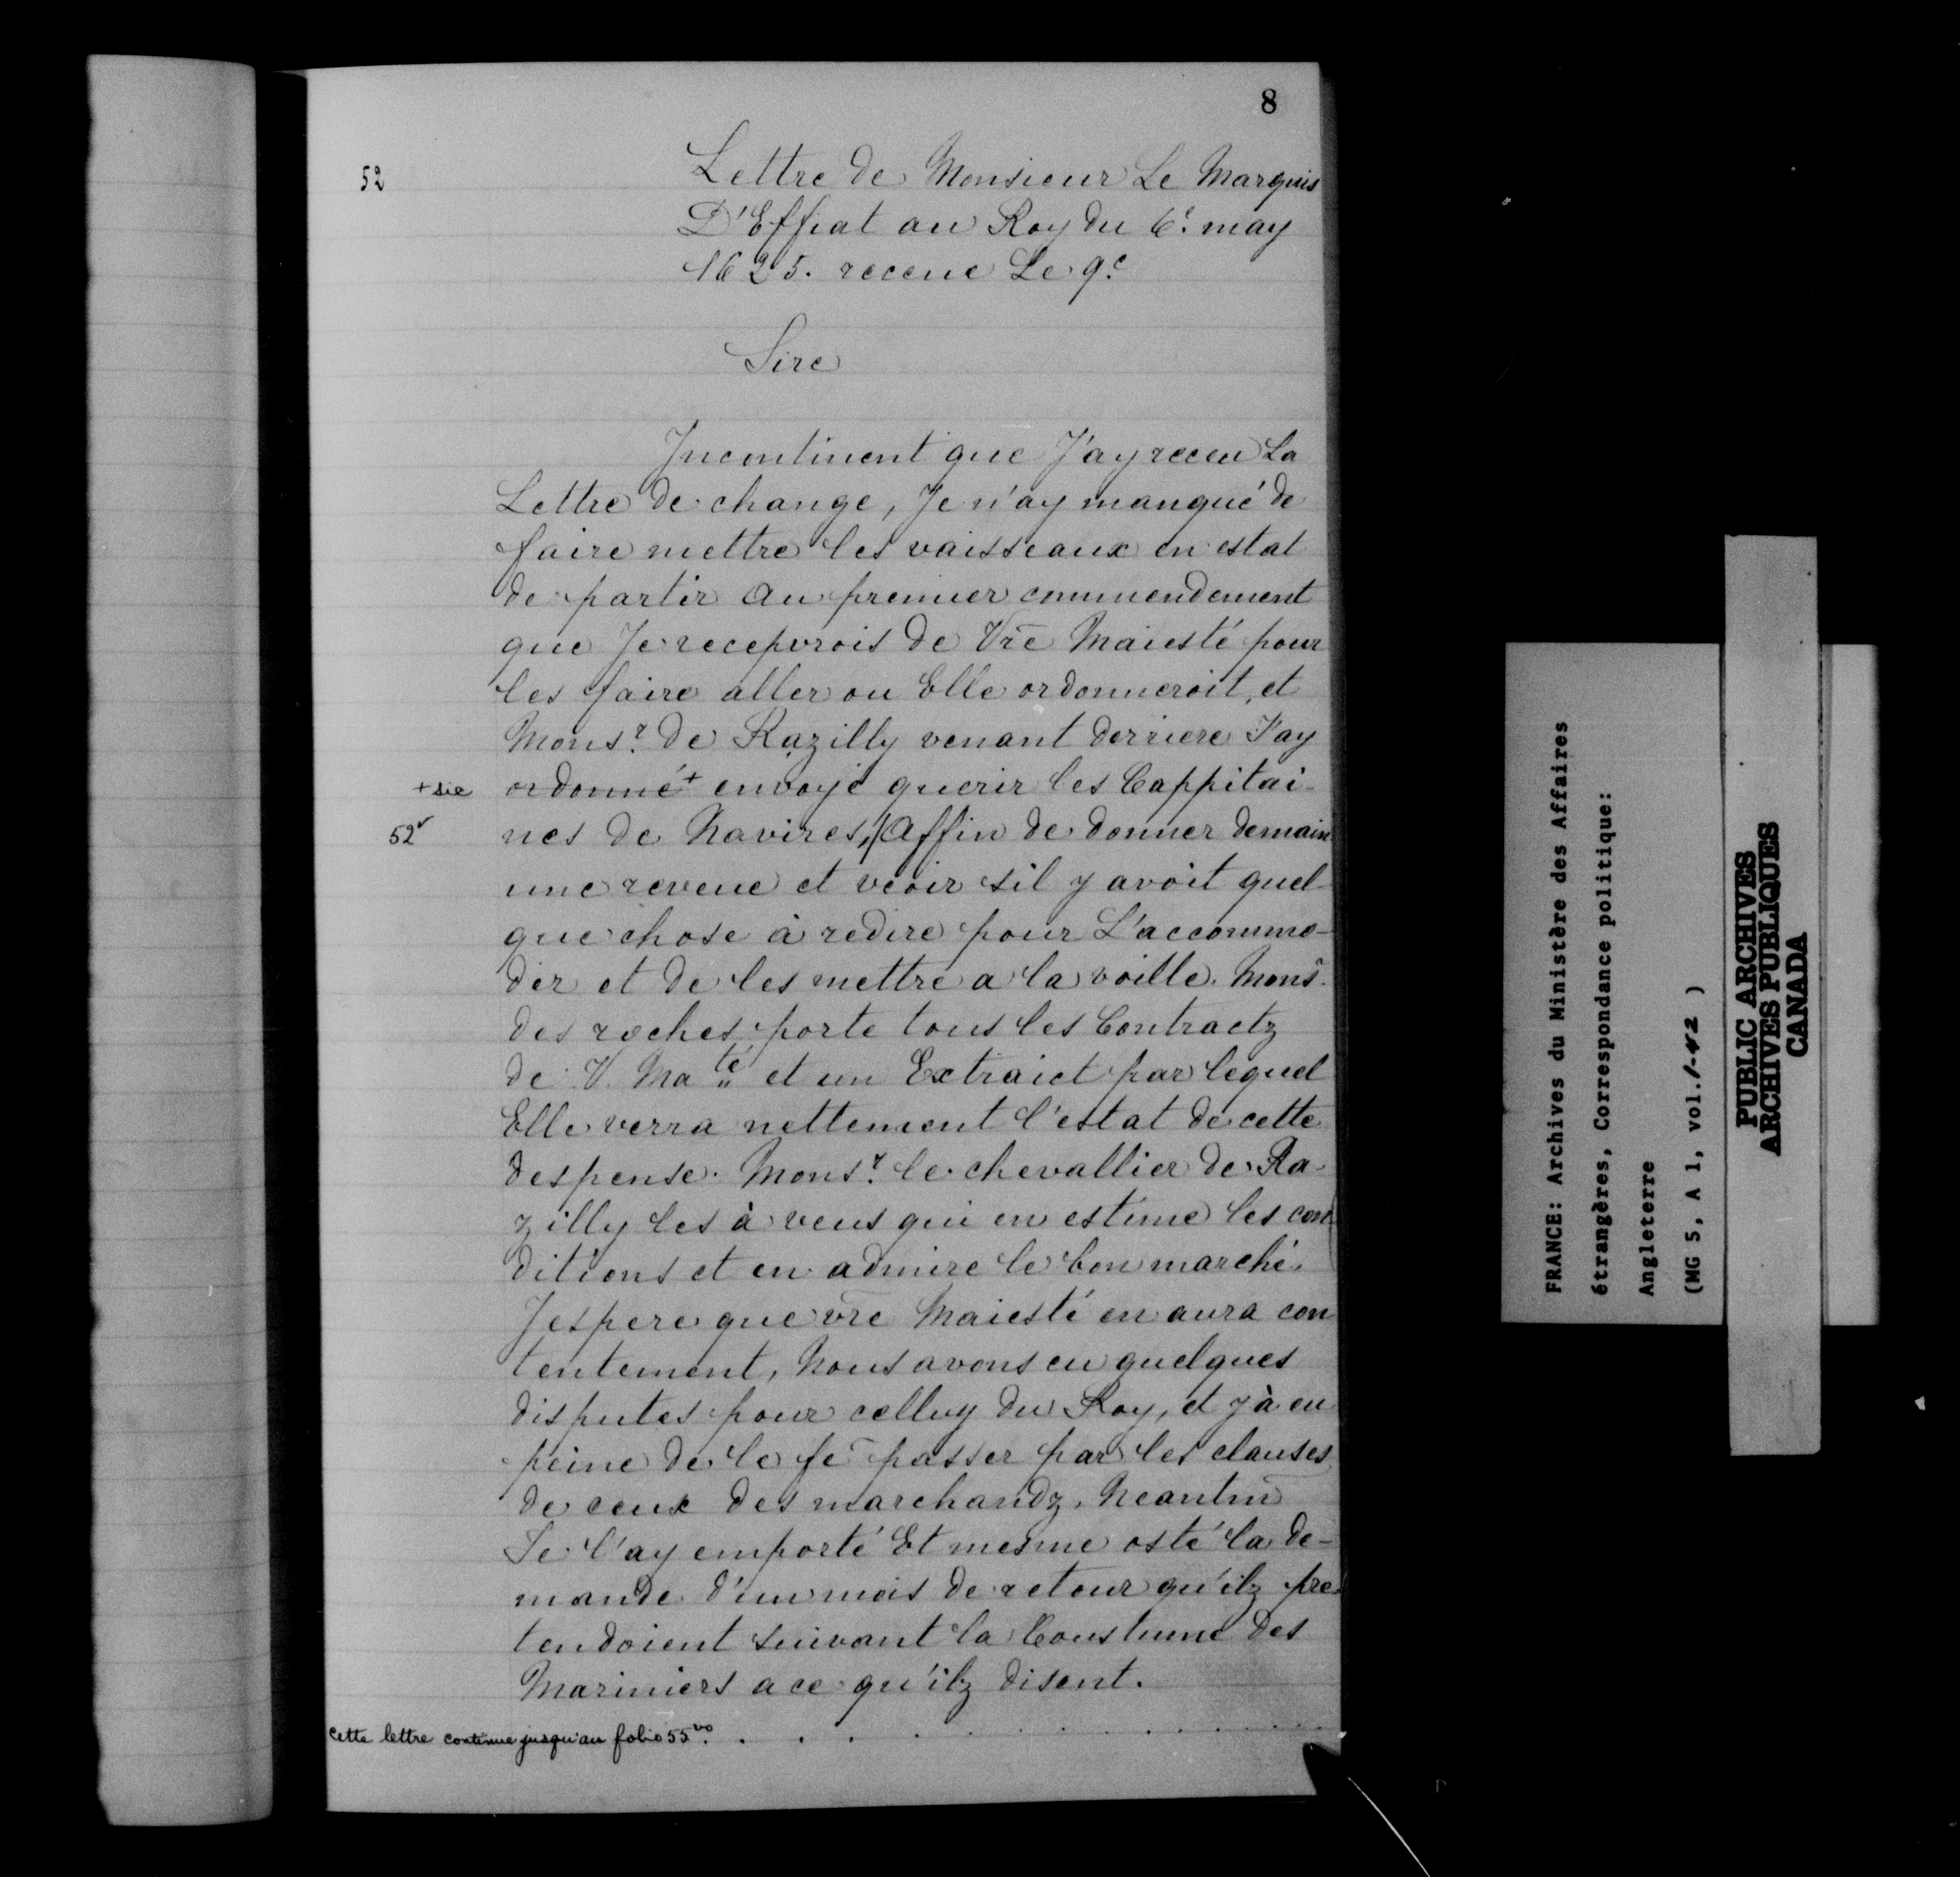 8
52
Lettre de Monsieur Le Marquis
D'Effiat au Roy du 6e. may
1625. receue Le 9.e
Sire
Incontinent que J'ay receu La
Lettre de change, Je n'ay manqué de
faire mettre les vaisseaux en estat
de partir au premier commendement
que Je recepvrois de Vrē Maiesté pour
les faire aller ou Elle ordonneroit, et
Monsr. de Razilly venant derriere J'ay
+ sic ordonné+ envoyé querir les Cappitai-
52v nes de Navires,/ Affin de donner demain
une reveue et veoir sil y avoit quel-
que chose à redire pour L'accommo-
der et de les mettre a la voille. Monsr.
des roches porte tous les Contractz
de V. Maté et un Extraict par lequel
Elle verra nettement l'estat de cette
despense. Monsr. le chevallier de Ra-
zilly les à veus qui en estime les con
ditions et en admire le bon marché.
Jespere que vrē Maiesté en aura con
tentement, Nous avons eu quelques
disputes pour celluy du Roy, et y à eu
peine de le fē passer par les clauses
de ceux des marchandz. Neantm̄
Je l'ay emporté Et mesme osté la de-
mande d'un mois de retour qu'ilz pre-
tendoient suivant la Coustume des
Mariniers a ce qu'ilz disent.
Cette lettre continue jusqu'au folio 55vo. . . . . . . . . . . .
FRANCE: Archives du Ministère des Affaires
étrangères, Correspondance politique:
Angleterre
(MG 5, A 1, vol. 1-42 )
PUBLIC ARCHIVES
ARCHIVES PUBLIQUES
CANADA